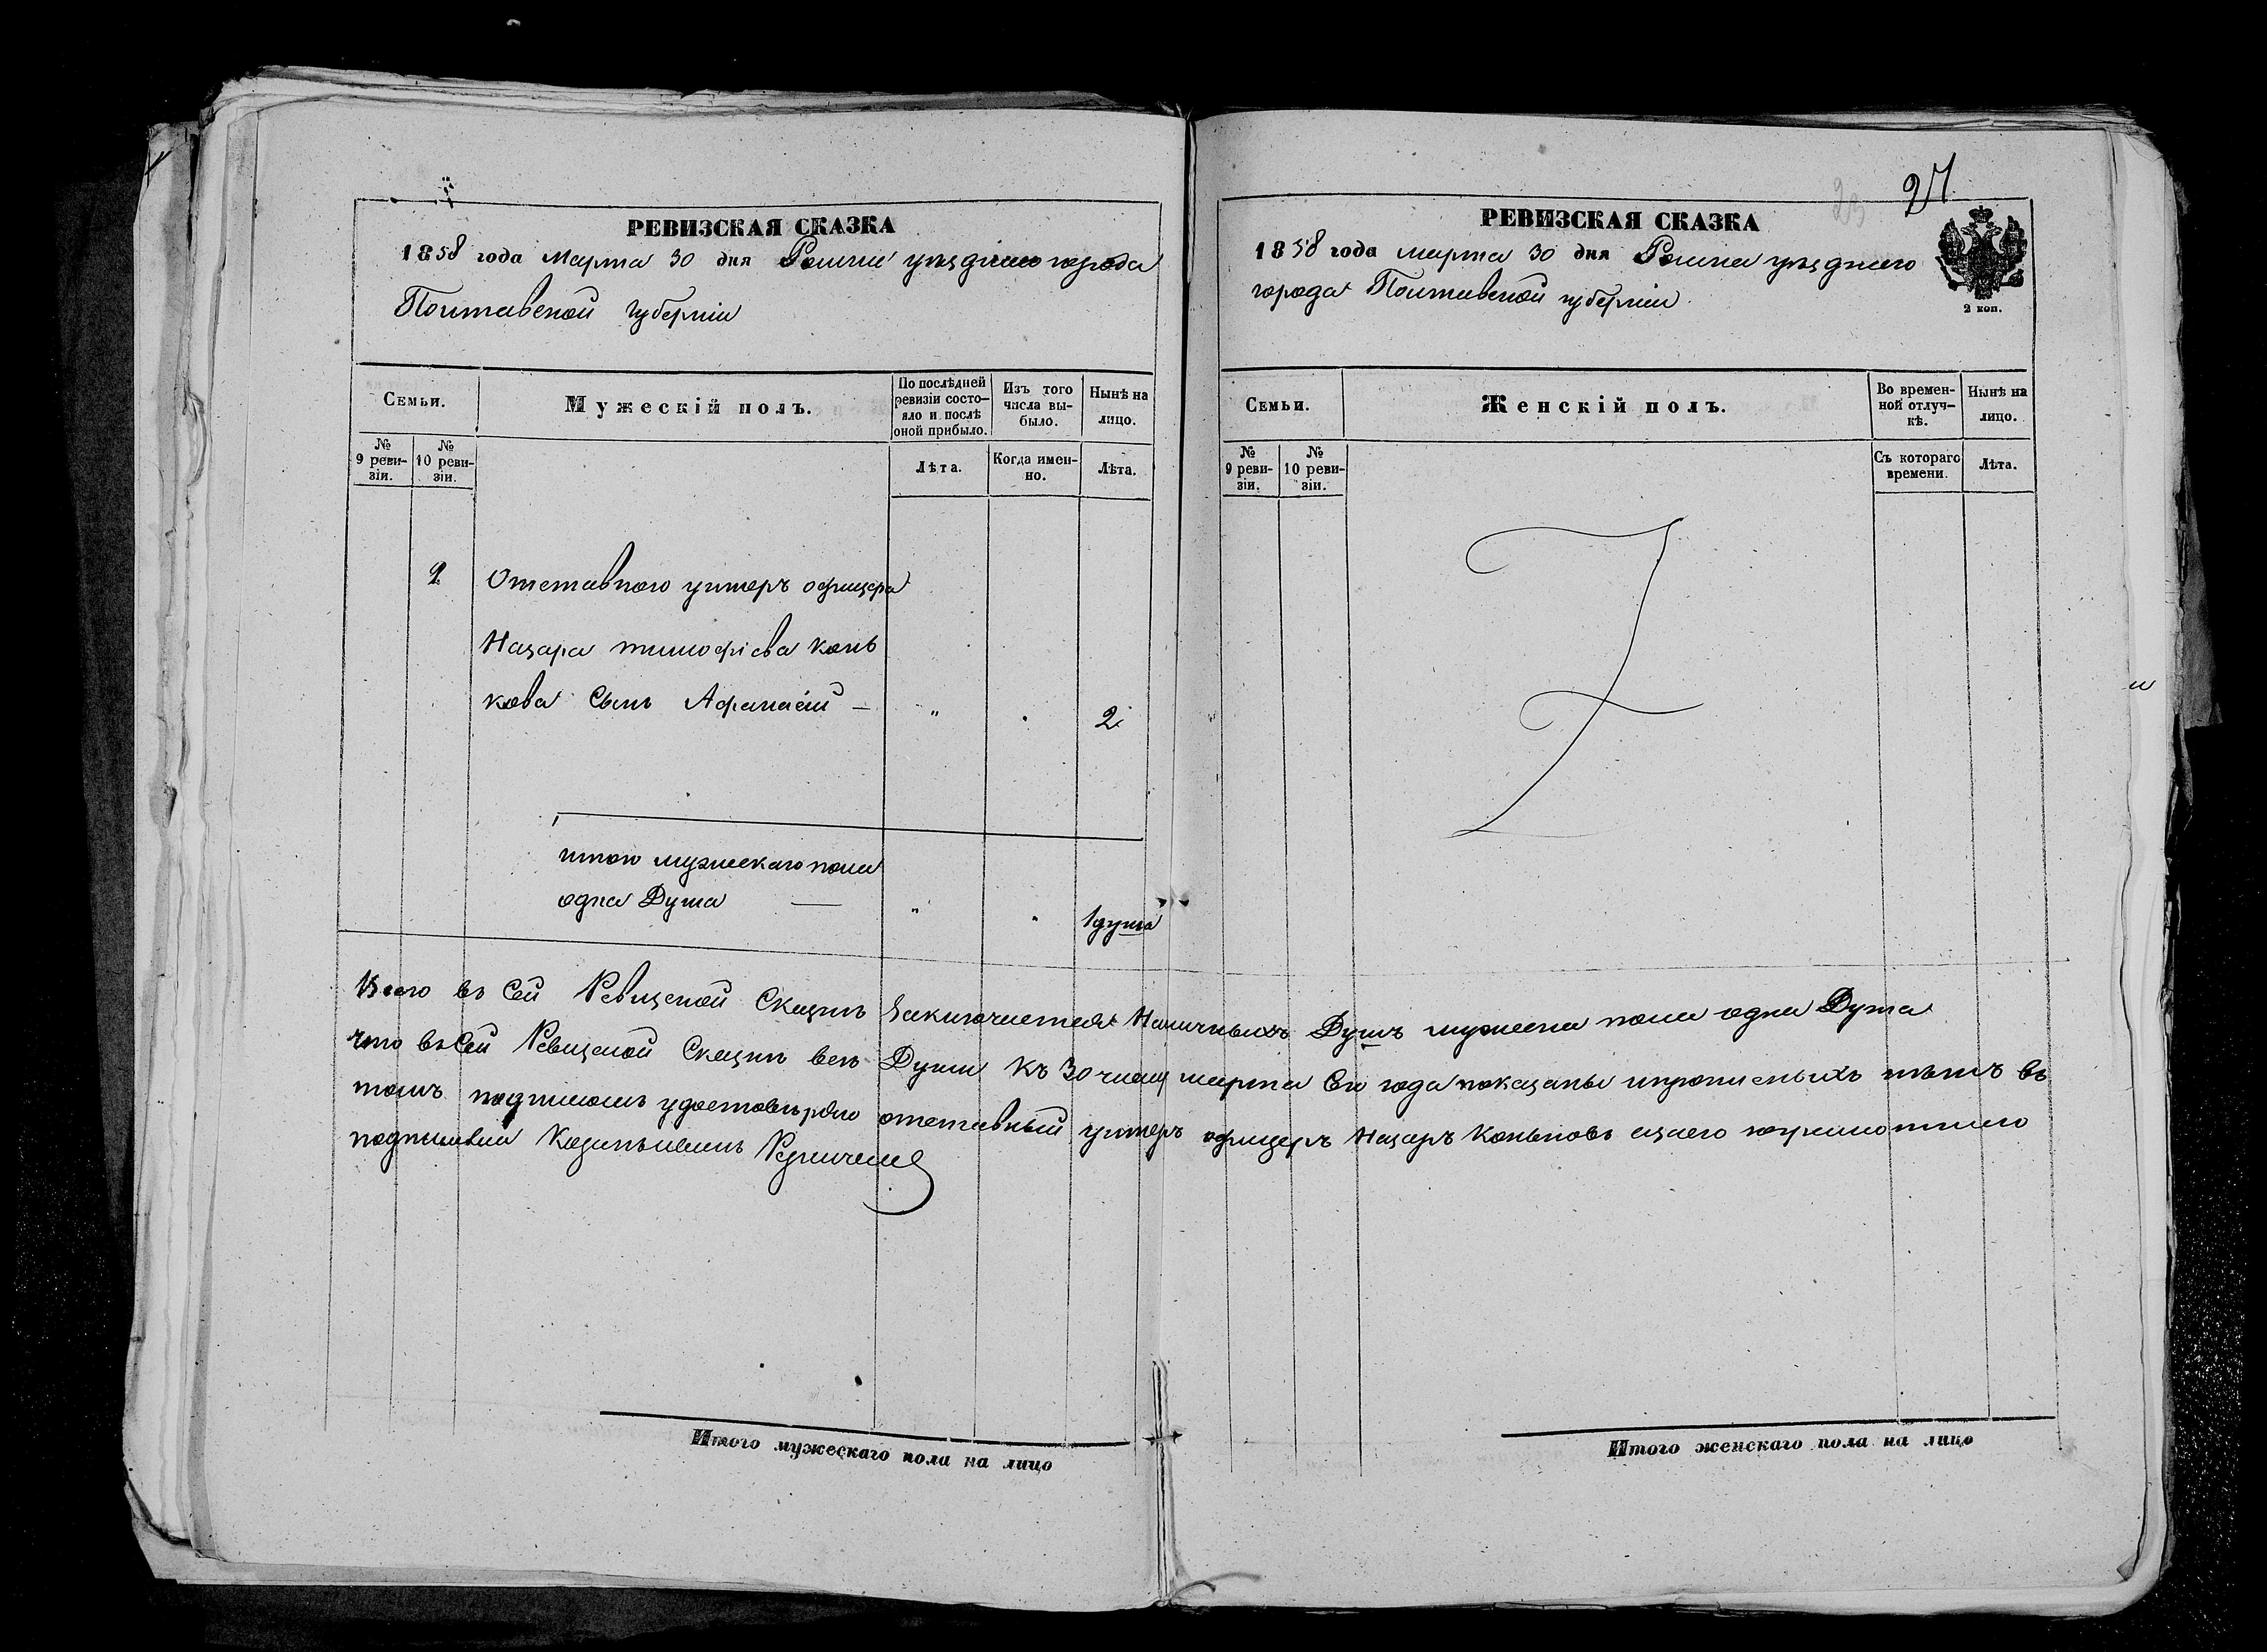 РЕВИЗСКАЯ СКАЗКА
1858 года Марта 30 дня Ромна уѣзднаго города
Полтавской губерніи
Семьи.
Мужескій полъ.
По послѣдней ревизіи состояло и послѣ оной прибыло.
Изъ того числа выбыло.
Нынѣ на лицо.
№ 9 ревизіи.
№ 10 ревизіи.
Лѣта.
Когда именно.
Лѣта.
1 Отставного унтеръ офицера
Назара тимофіева Конь
кова Сынъ Афанасій — " . 2
итого мужескаго пола
одна Душа — " " 1 душа
27
23
РЕВИЗСКАЯ СКАЗКА
1858 года марта 30 дня Ромна уѣзднаго
города Полтавской губерніи
2 коп.
Семьи.
Женскій полъ.
Во временной отлучкѣ.
Нынѣ на лицо.
№ 9 ревизіи.
№ 10 ревизіи.
Съ котораго времени.
Лѣта.
Всего въ Сей Ревизской Сказкѣ Заключается Наличныхъ Душъ мужеска пола одна Душа
что въ Сей Ревизской Сказки всѣ Души Къ 30 числу марта Сего года показаны и прописныхъ нѣтъ въ
томъ подписомъ удостовѣряю отставный унтеръ офицеръ Назаръ Коньковъ а за его
подписался
Итого мужескаго пола на лицо
Итого женскаго пола на лицо